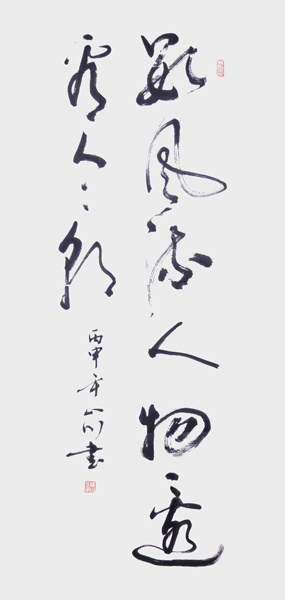 數風流人物還
看今朝
丙申年書